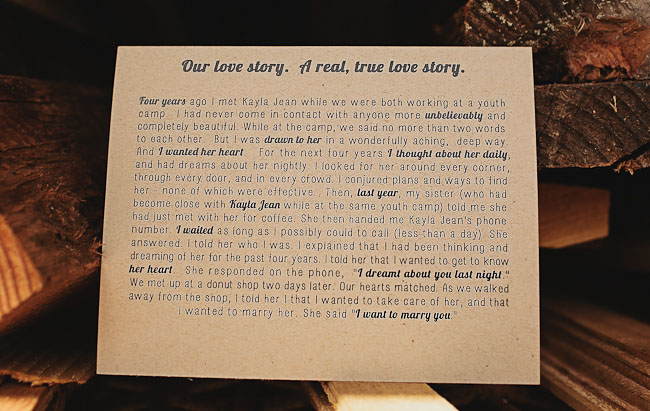 Our love story. A real, true love story.
Four years ago I met Kayla Jean while we were both working at a youth
camp. I had never come in contact with anyone more unbelievably and
completely beautiful. While at the camp, we said no more than two words
to each other. But I was drawn to her in a wonderfully aching, deep way.
And I wanted her heart. For the next four years I thought about her daily,
and had dreams about her nightly. I looked for her around every corner,
through every door, and in every crowd. I conjured plans and ways to find
her - none of which were effective. Then, last year, my sister (who had
become close with Kayla Jean while at the same youth camp) told me she
had just met with her for coffee. She then handed me Kayla Jean's phone
number. I waited as long as I possibly could to call (less than a day). She
answered. I told her who I was. I explained that I had been thinking and
dreaming of her for the past four years. I told her that I wanted to get to know
her heart. She responded on the phone, "I dreamt about you last night."
We met up at a donut shop two days later. Our hearts matched. As we walked
away from the shop, I told her I that I wanted to take care of her, and that
I wanted to marry her. She said "I want to marry you."